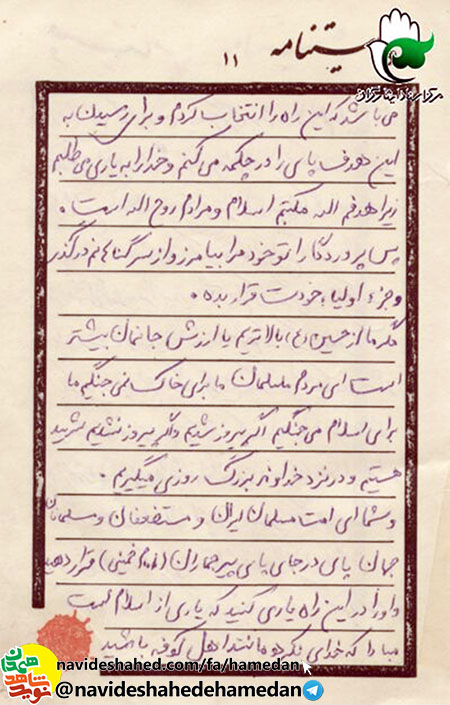 وصیتنامه
۱۱
مرکز اسناد ایثارگران
می باشد که این راه را انتخاب کردم و برای رسیدن به
این هدف پای را در چکمه می کنم و خدا را به یاری می طلبم
زیرا هدفم الله مکتبم اسلام و مرادم روح الله است.
پس پروردگارا تو خود مرا بیامرز و از سر گناهانم درگذر
و جزء اولیاء خودت قرار بده.
مگر ما از حسین (ع) بالاتریم یا ارزش جانمان بیشتر
است ای مردم مسلمان ما برای خاک نمی جنگیم ما
برای اسلام می جنگیم اگر پیروز شدیم و اگر پیروز نشدیم شهید
هستیم و در نزد خداوند بزرگ روزی میگیریم.
و شما ای امت مسلمان ایران و مستضعفان و مسلمانان
جهان پای در جای پای پیر جماران (امام خمینی) قرار دهید
و او را در این راه یاری کنید که یاری از اسلام است
مبادا که خدای نکرده مانند اهل کوفه باشید
نوید شاهد همدان
navideshahed.com/fa/hamedan
@navideshahedehamedan